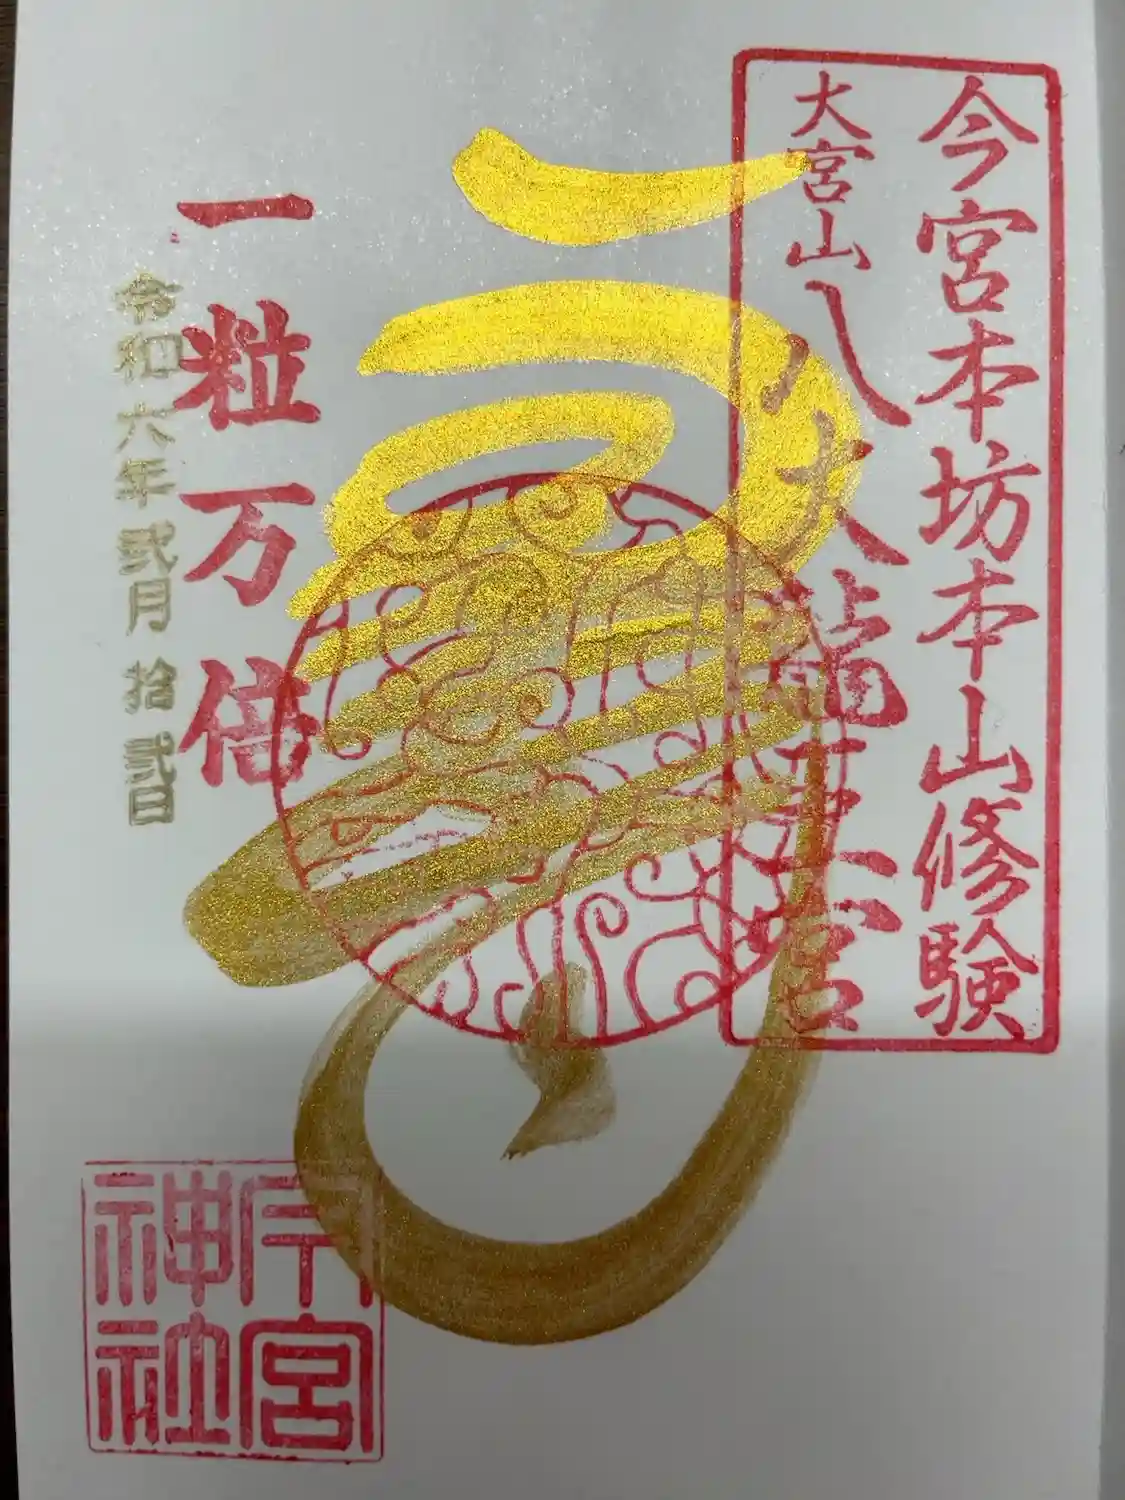 今宮本坊本山修験
大宮山八大龍王宮
一粒万倍
令和六年弐月拾弐日
今宮
神社